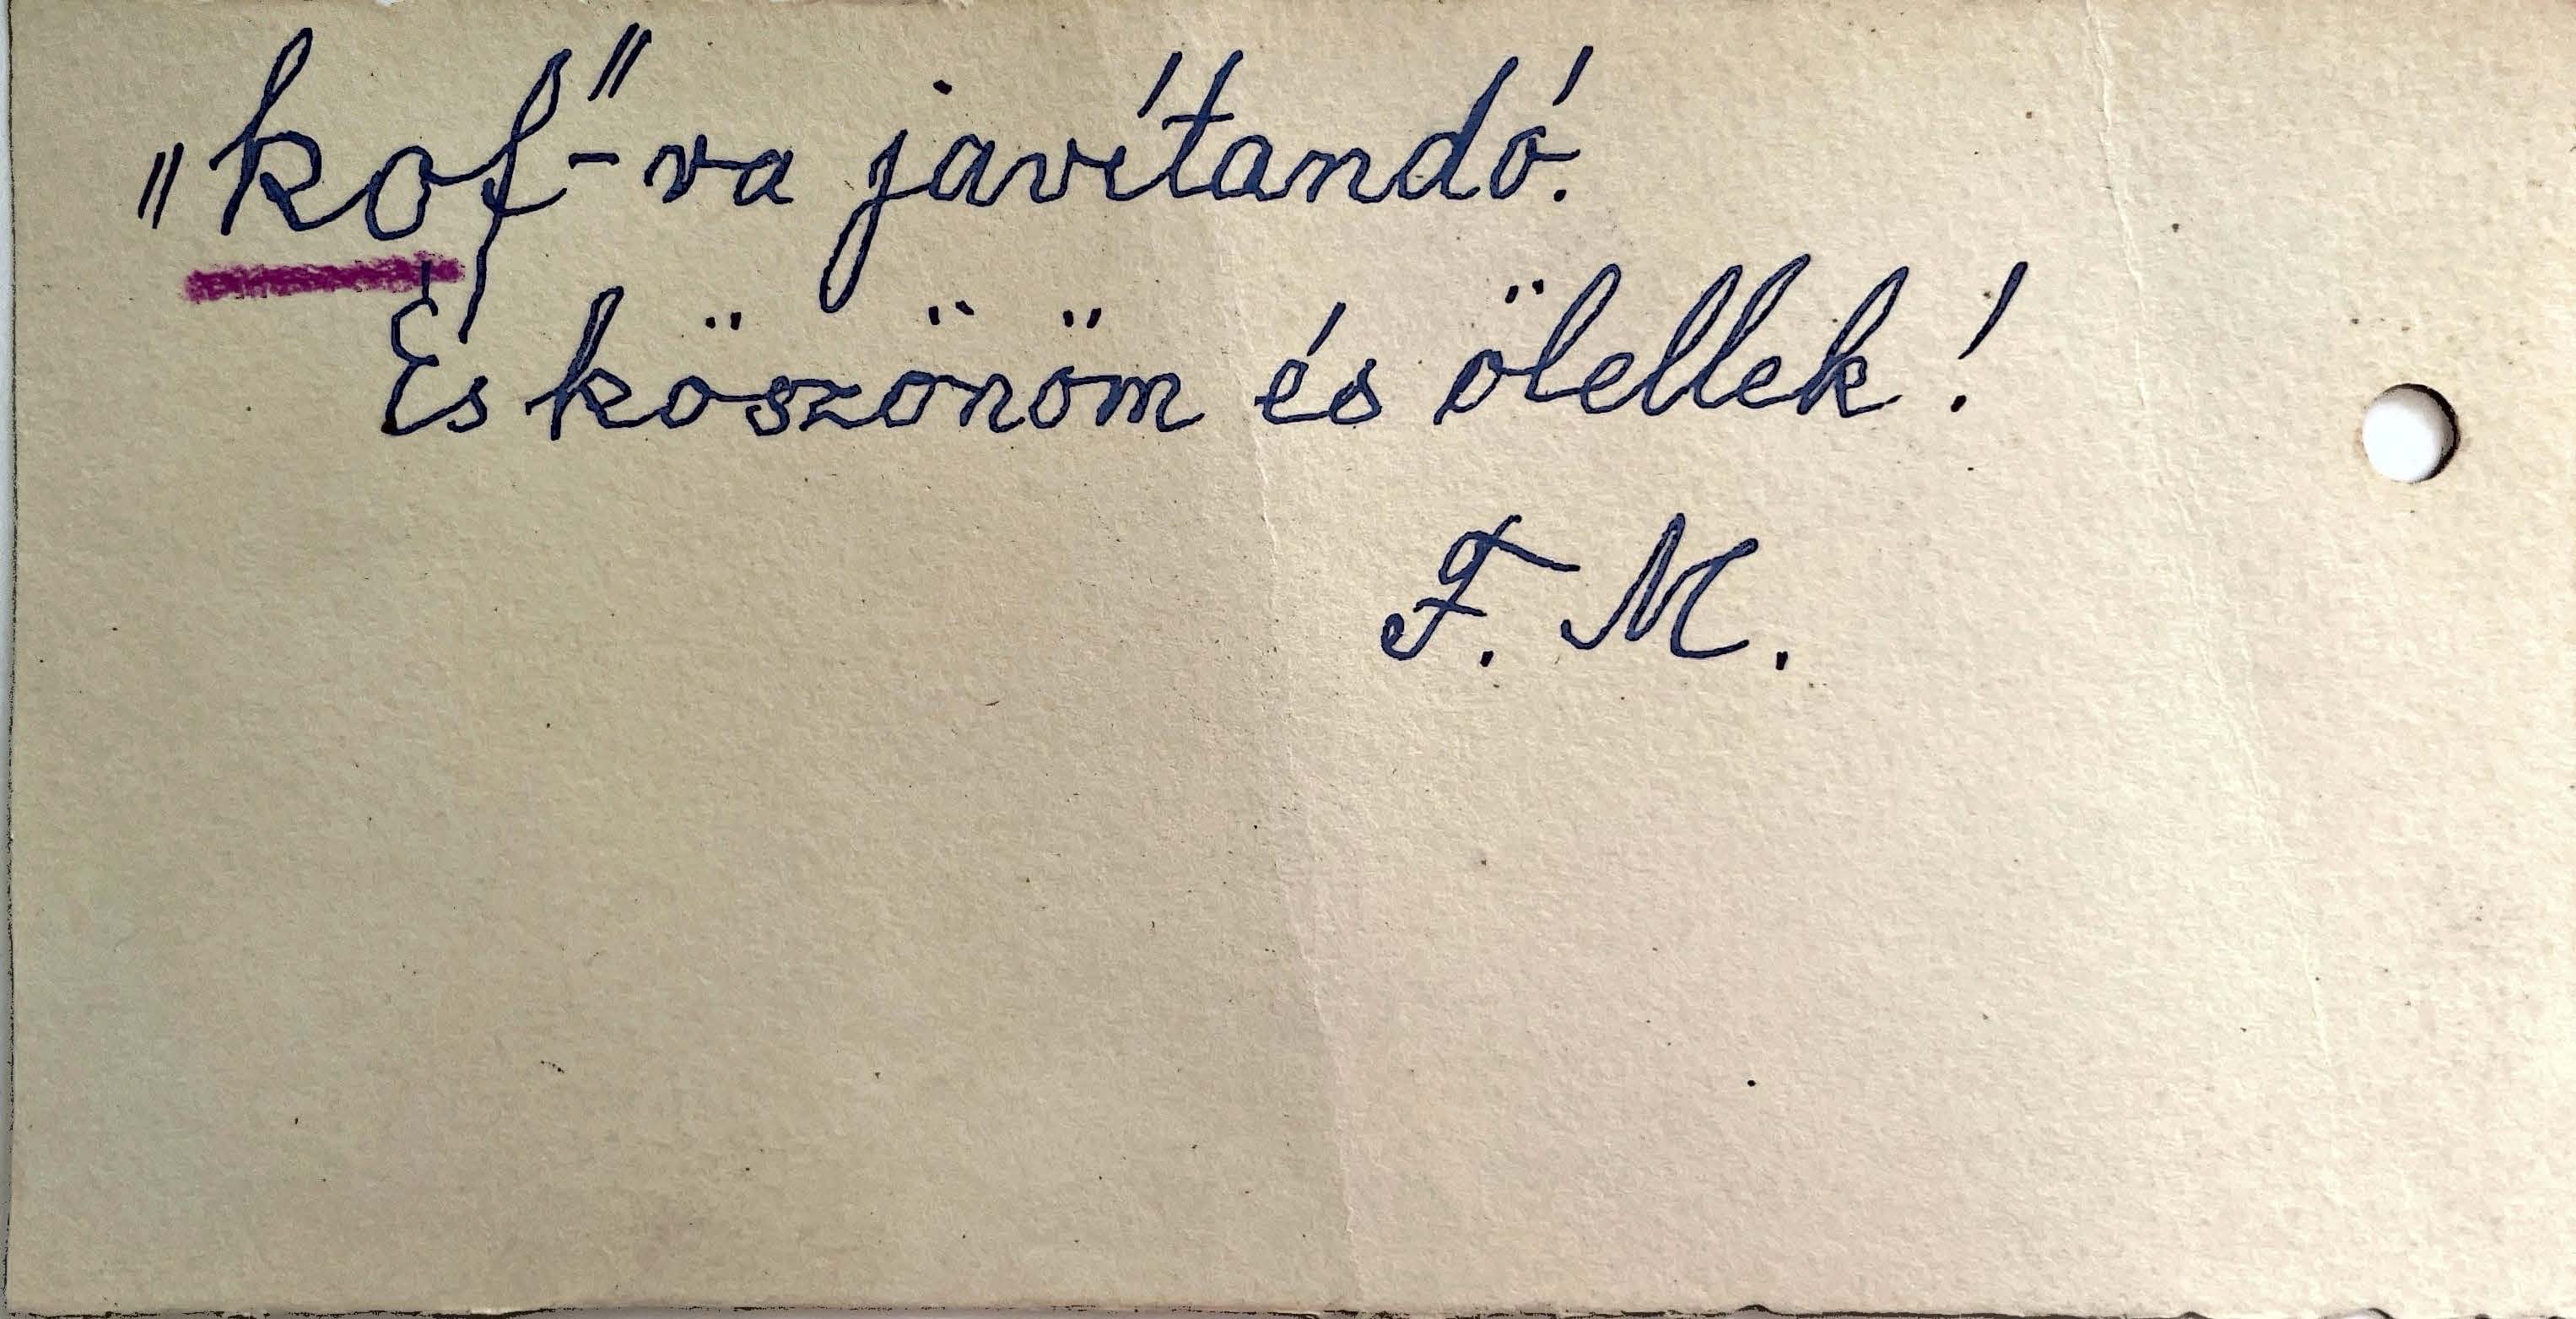 „kof"-va javítandó.
És köszönöm és ölellek!
F. M.